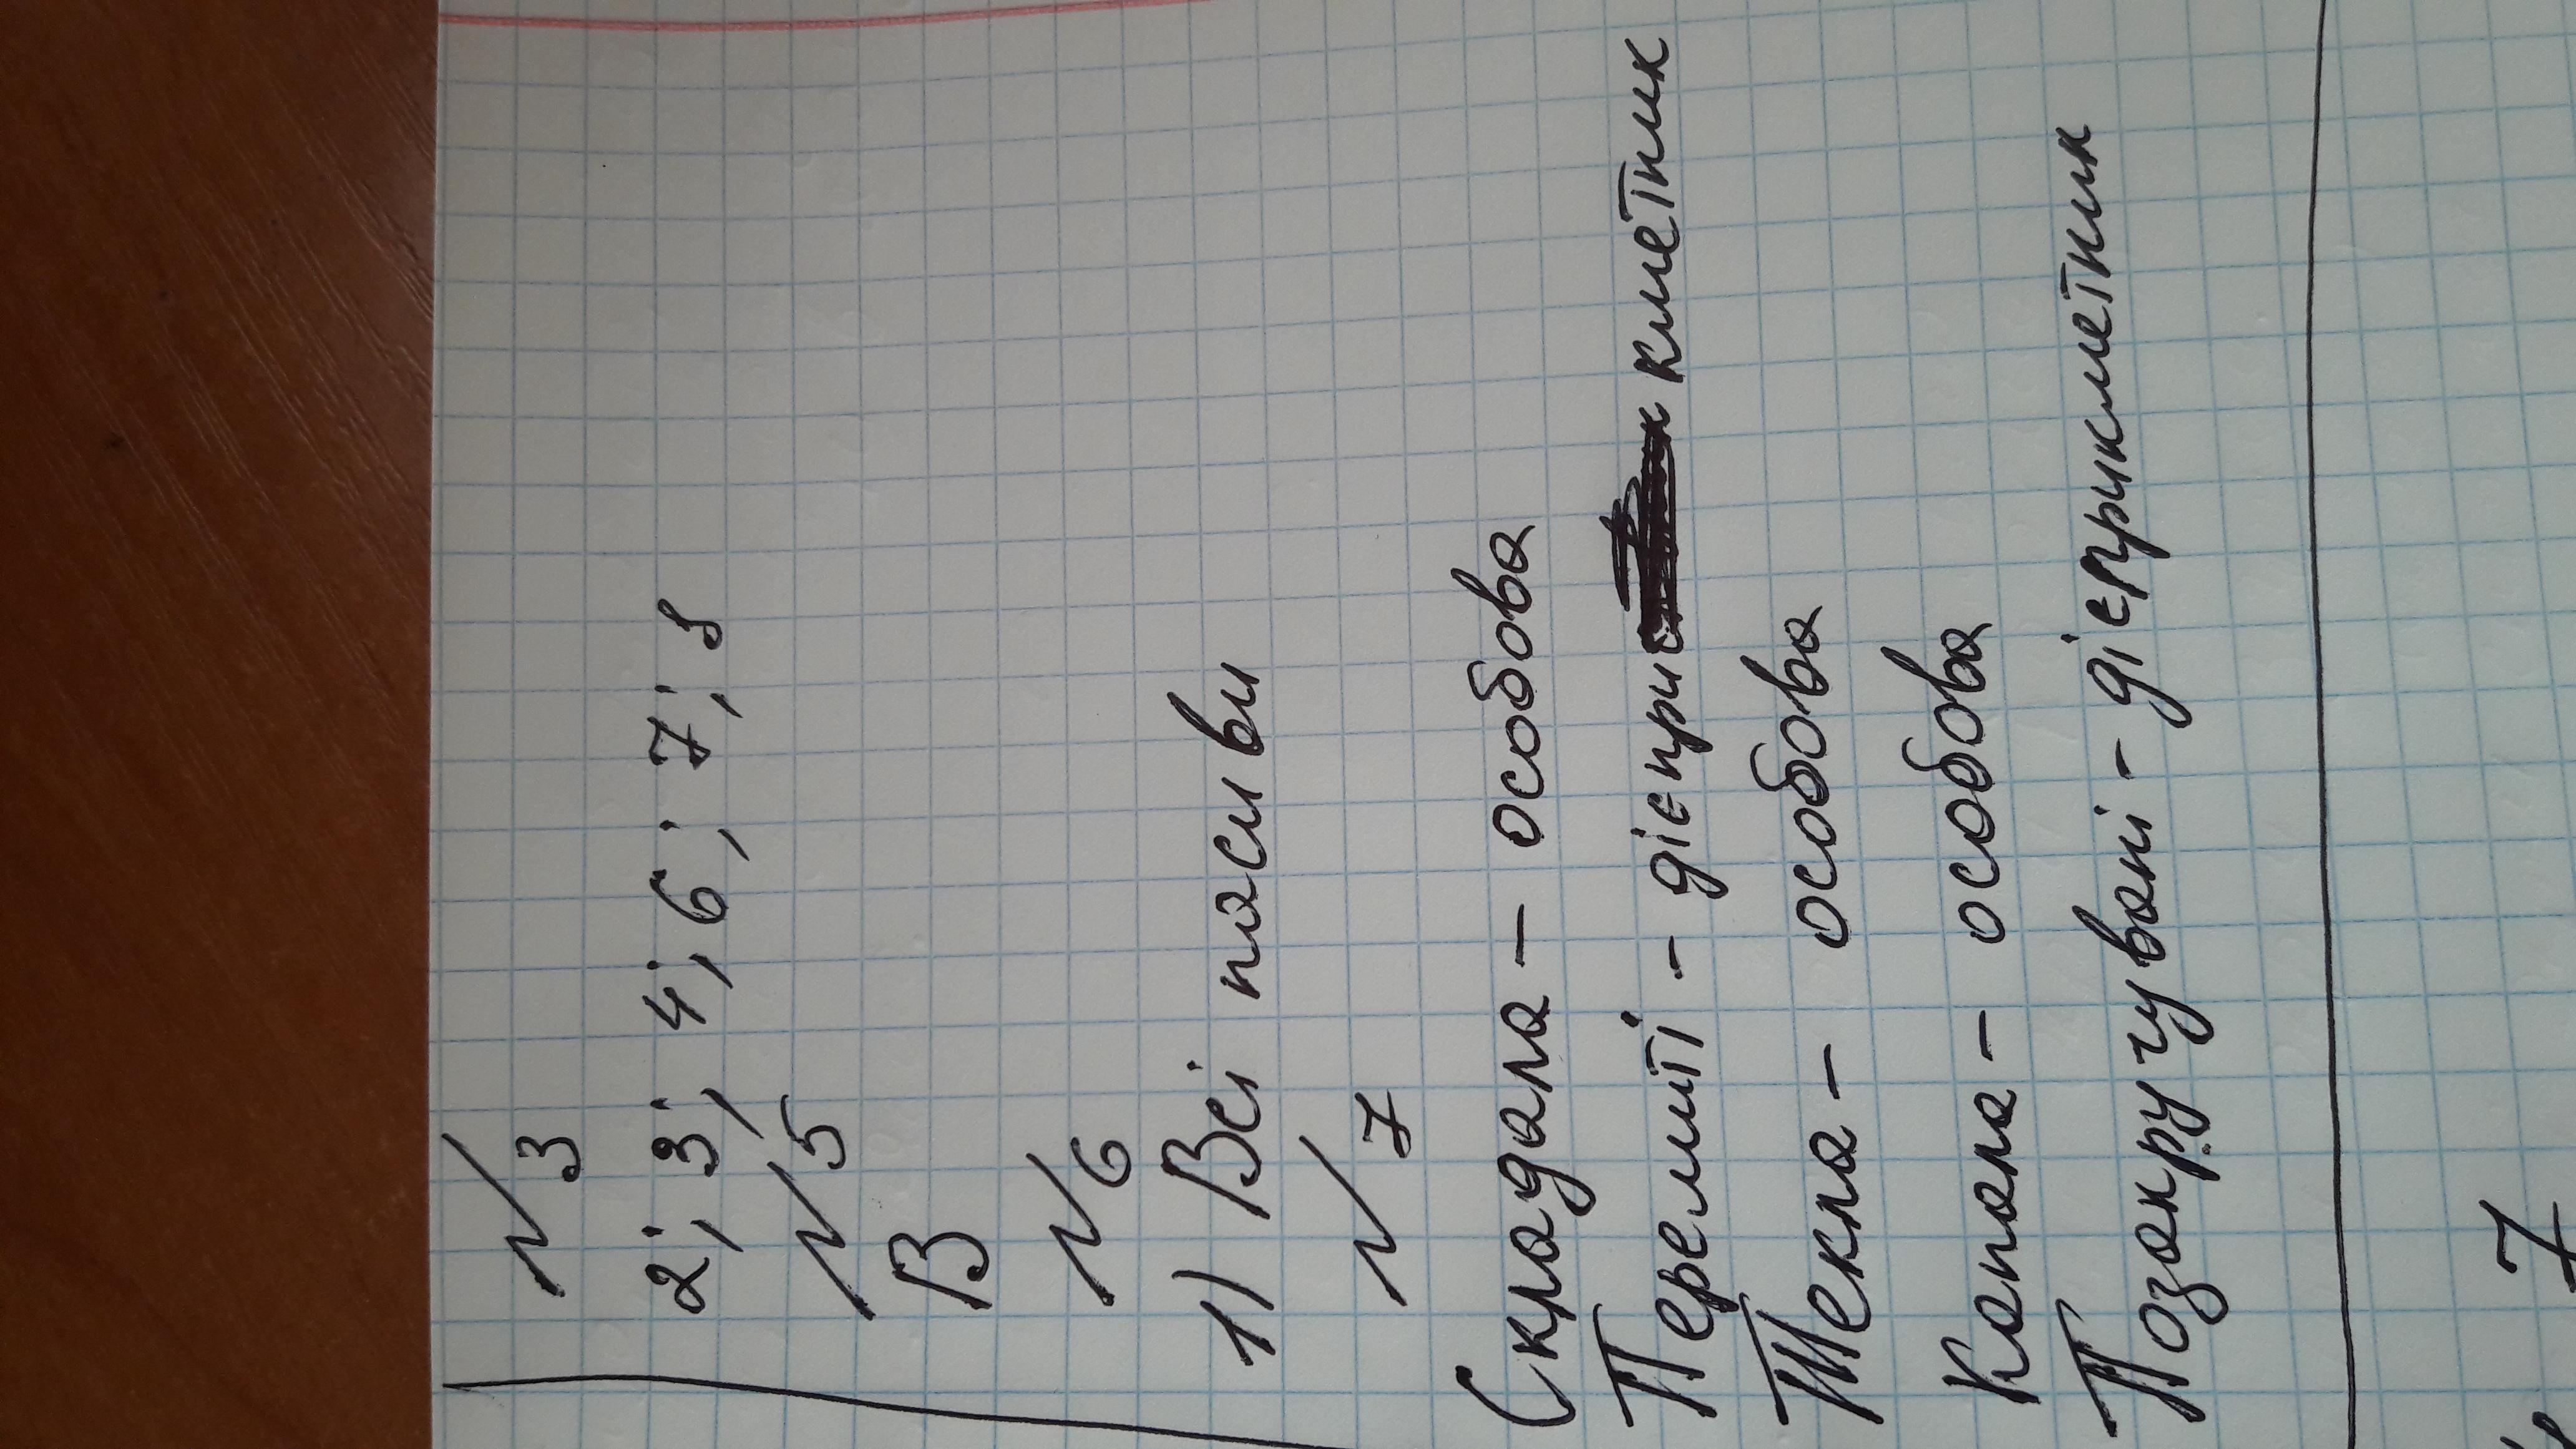 №3
2; 3; 4; 6; 7; 8
№5
В
№6
1) Всі пасиви
№7
Складала - особова
Перемиті - дієприкметник
Текла - особова
Капала - особова
Позакручувані - дієприкметник
7